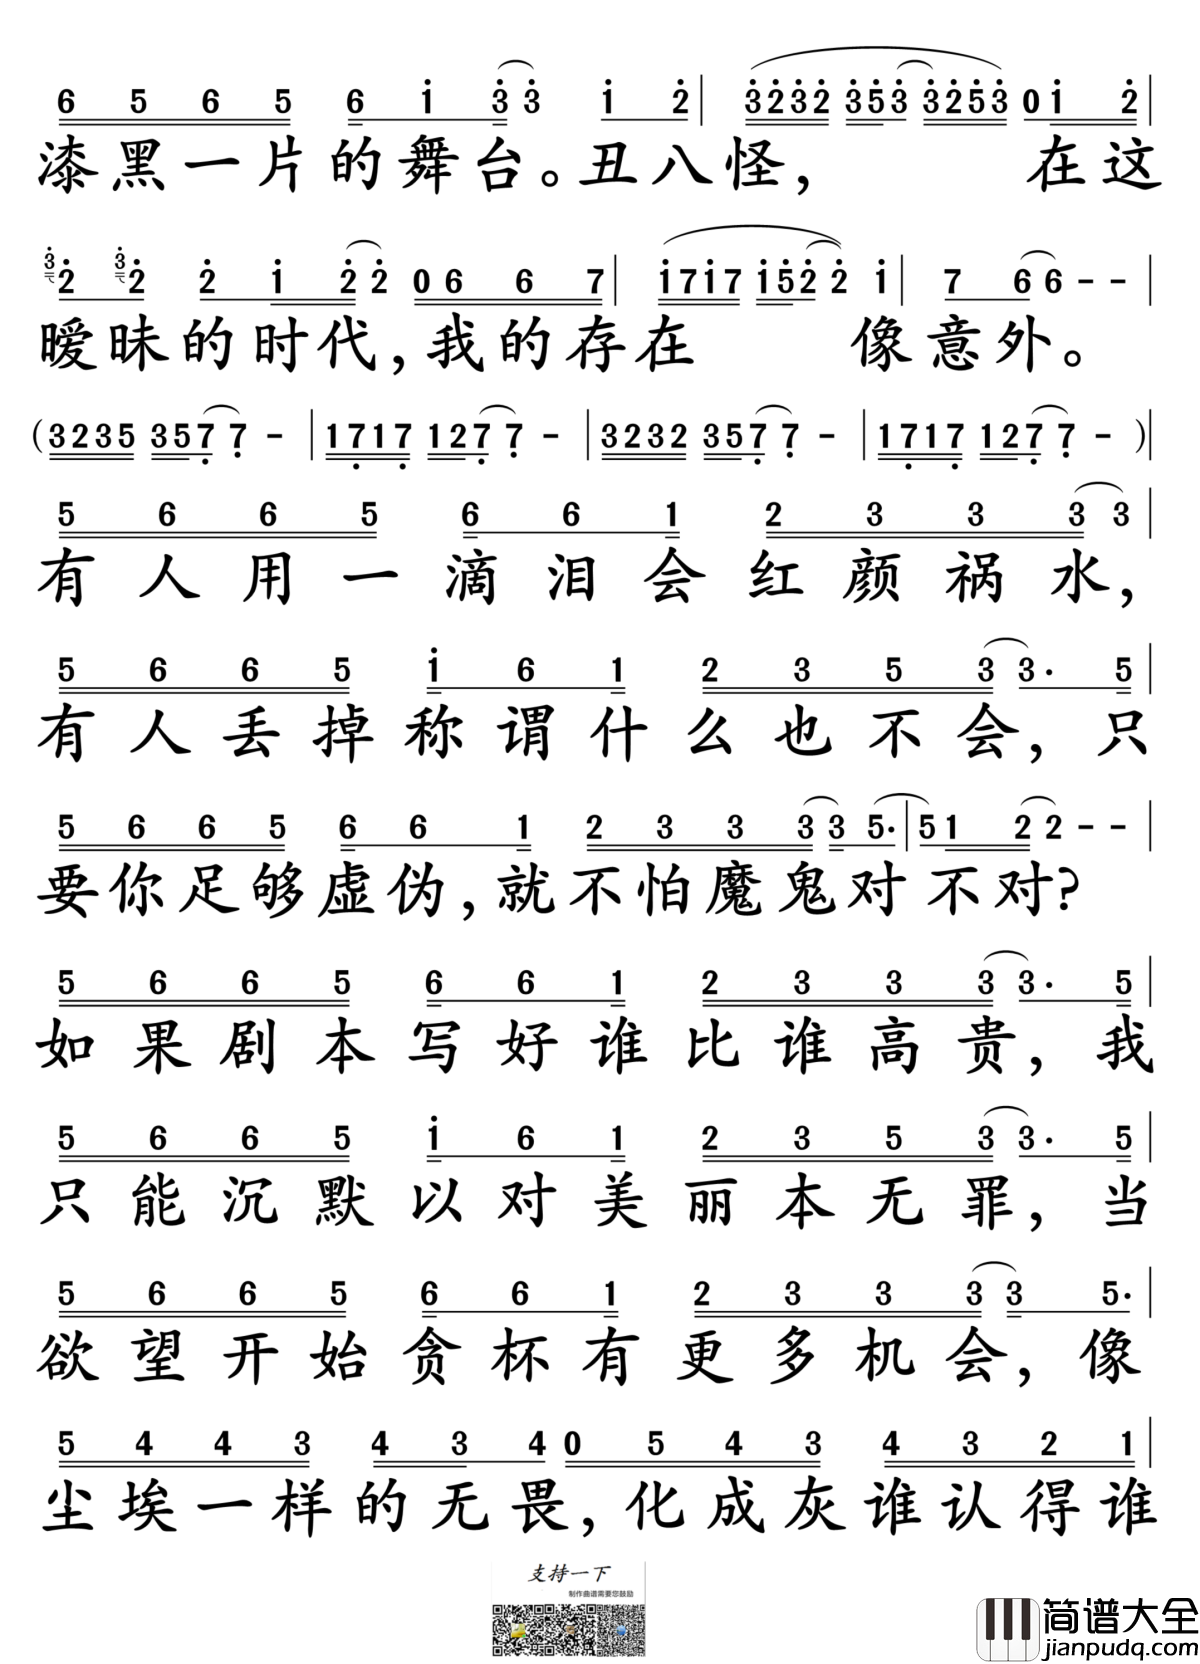 6 5 6 5 6 1 3 3 1 2 | 3232 353 3253 01 2 |
漆黑一片的舞台。丑八怪， 在这
32 32 2 1 2 2 0 6 6 7 | 1717 152 2 1 | 7 6 6 - - |
暧昧的时代，我的存在 像意外。
(3235 357 7 - | 1717 127 7 - | 3232 357 7 - | 1717 127 7 - )|
5 6 6 5 6 6 1 2 3 3 3 3 |
有人用一滴泪会红颜祸水，
5 6 6 5 1 6 1 2 3 5 3 3· 5 |
有人丢掉称谓什么也不会，只
5 6 6 5 6 6 1 2 3 3 3 3 5· | 5 1 2 2 - - |
要你足够虚伪，就不怕魔鬼对不对?
5 6 6 5 6 6 1 2 3 3 3 3· 5 |
如果剧本写好谁比谁高贵，我
5 6 6 5 1 6 1 2 3 5 3 3· 5 |
只能沉默以对美丽本无罪，当
5 6 6 5 6 6 1 2 3 3 3 3 5· |
欲望开始贪杯有更多机会，像
5 4 4 3 4 3 4 0 5 4 3 4 3 2 1 |
尘埃一样的无畏，化成灰谁认得谁
支持一下
制作曲谱需要您鼓励
简谱大全
jianpudq.com